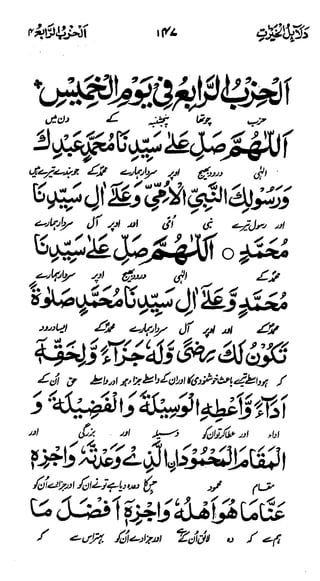 دلائل الخیرات ۱۴۷ الحزب الرابع ۴
اَلْحِزْبُ الرَّابِعُ فِیْ یَوْمِ الْخَمِیْسِ
حزب چوتھا پنجشنبہ کے دن میں
اَللّٰهُمَّ صَلِّ عَلٰی سَیِّدِنَا مُحَمَّدٍ عَبْدِكَ
الٰہی درود بھیج اوپر سردار ہمارے محمدؐ کے جو بندے تیرے ہیں
وَرَسُوْلِكَ النَّبِیِّ الْاُمِّیِّ وَعَلٰٓی اٰلِ سَیِّدِنَا
اور رسول تیرے نبی اُمّی اور اوپر آل سردار ہمارے
مُحَمَّدٍ ○ اَللّٰهُمَّ صَلِّ عَلٰی سَیِّدِنَا
محمدؐ کے الٰہی درود بھیج اوپر سردار ہمارے
مُحَمَّدٍ وَّعَلٰٓی اٰلِ سَیِّدِنَا مُحَمَّدٍ صَلٰوةً
محمدؐ کے اور اوپر آل سردار ہمارے محمدؐ کے ایسا درود
تَكُوْنُ لَكَ رِضًی وَّلَهٗ جَزَآءً وَّلِحَقِّهٖ
کہ ہو واسطے تیرے باعث خوشنودی کا اور ان کے واسطے جزاء ہو اور واسطے حق اُن کے
اَدَآءً وَّاَعْطِهِ الْوَسِیْلَةَ وَالْفَضِیْلَةَ وَ
اداء اور عطا کر تو ان کو وسیلہ اور بزرگی اور
الْمَقَامَ الْمَحْمُوْدَ الَّذِیْ وَعَدْتَّهٗ وَاجْزِهٖ
مقام محمود جس کا وعدہ دیا ہے تو نے ان کو اور جزا دے اُن کو
عَنَّا مَا هُوَ اَهْلُهٗ وَاجْزِهٖٓ اَفْضَلَ مَا
ہم سے کہ وہ لائق اُن کے ہے اور جزا دے ان کو بہتر اس سے کہ